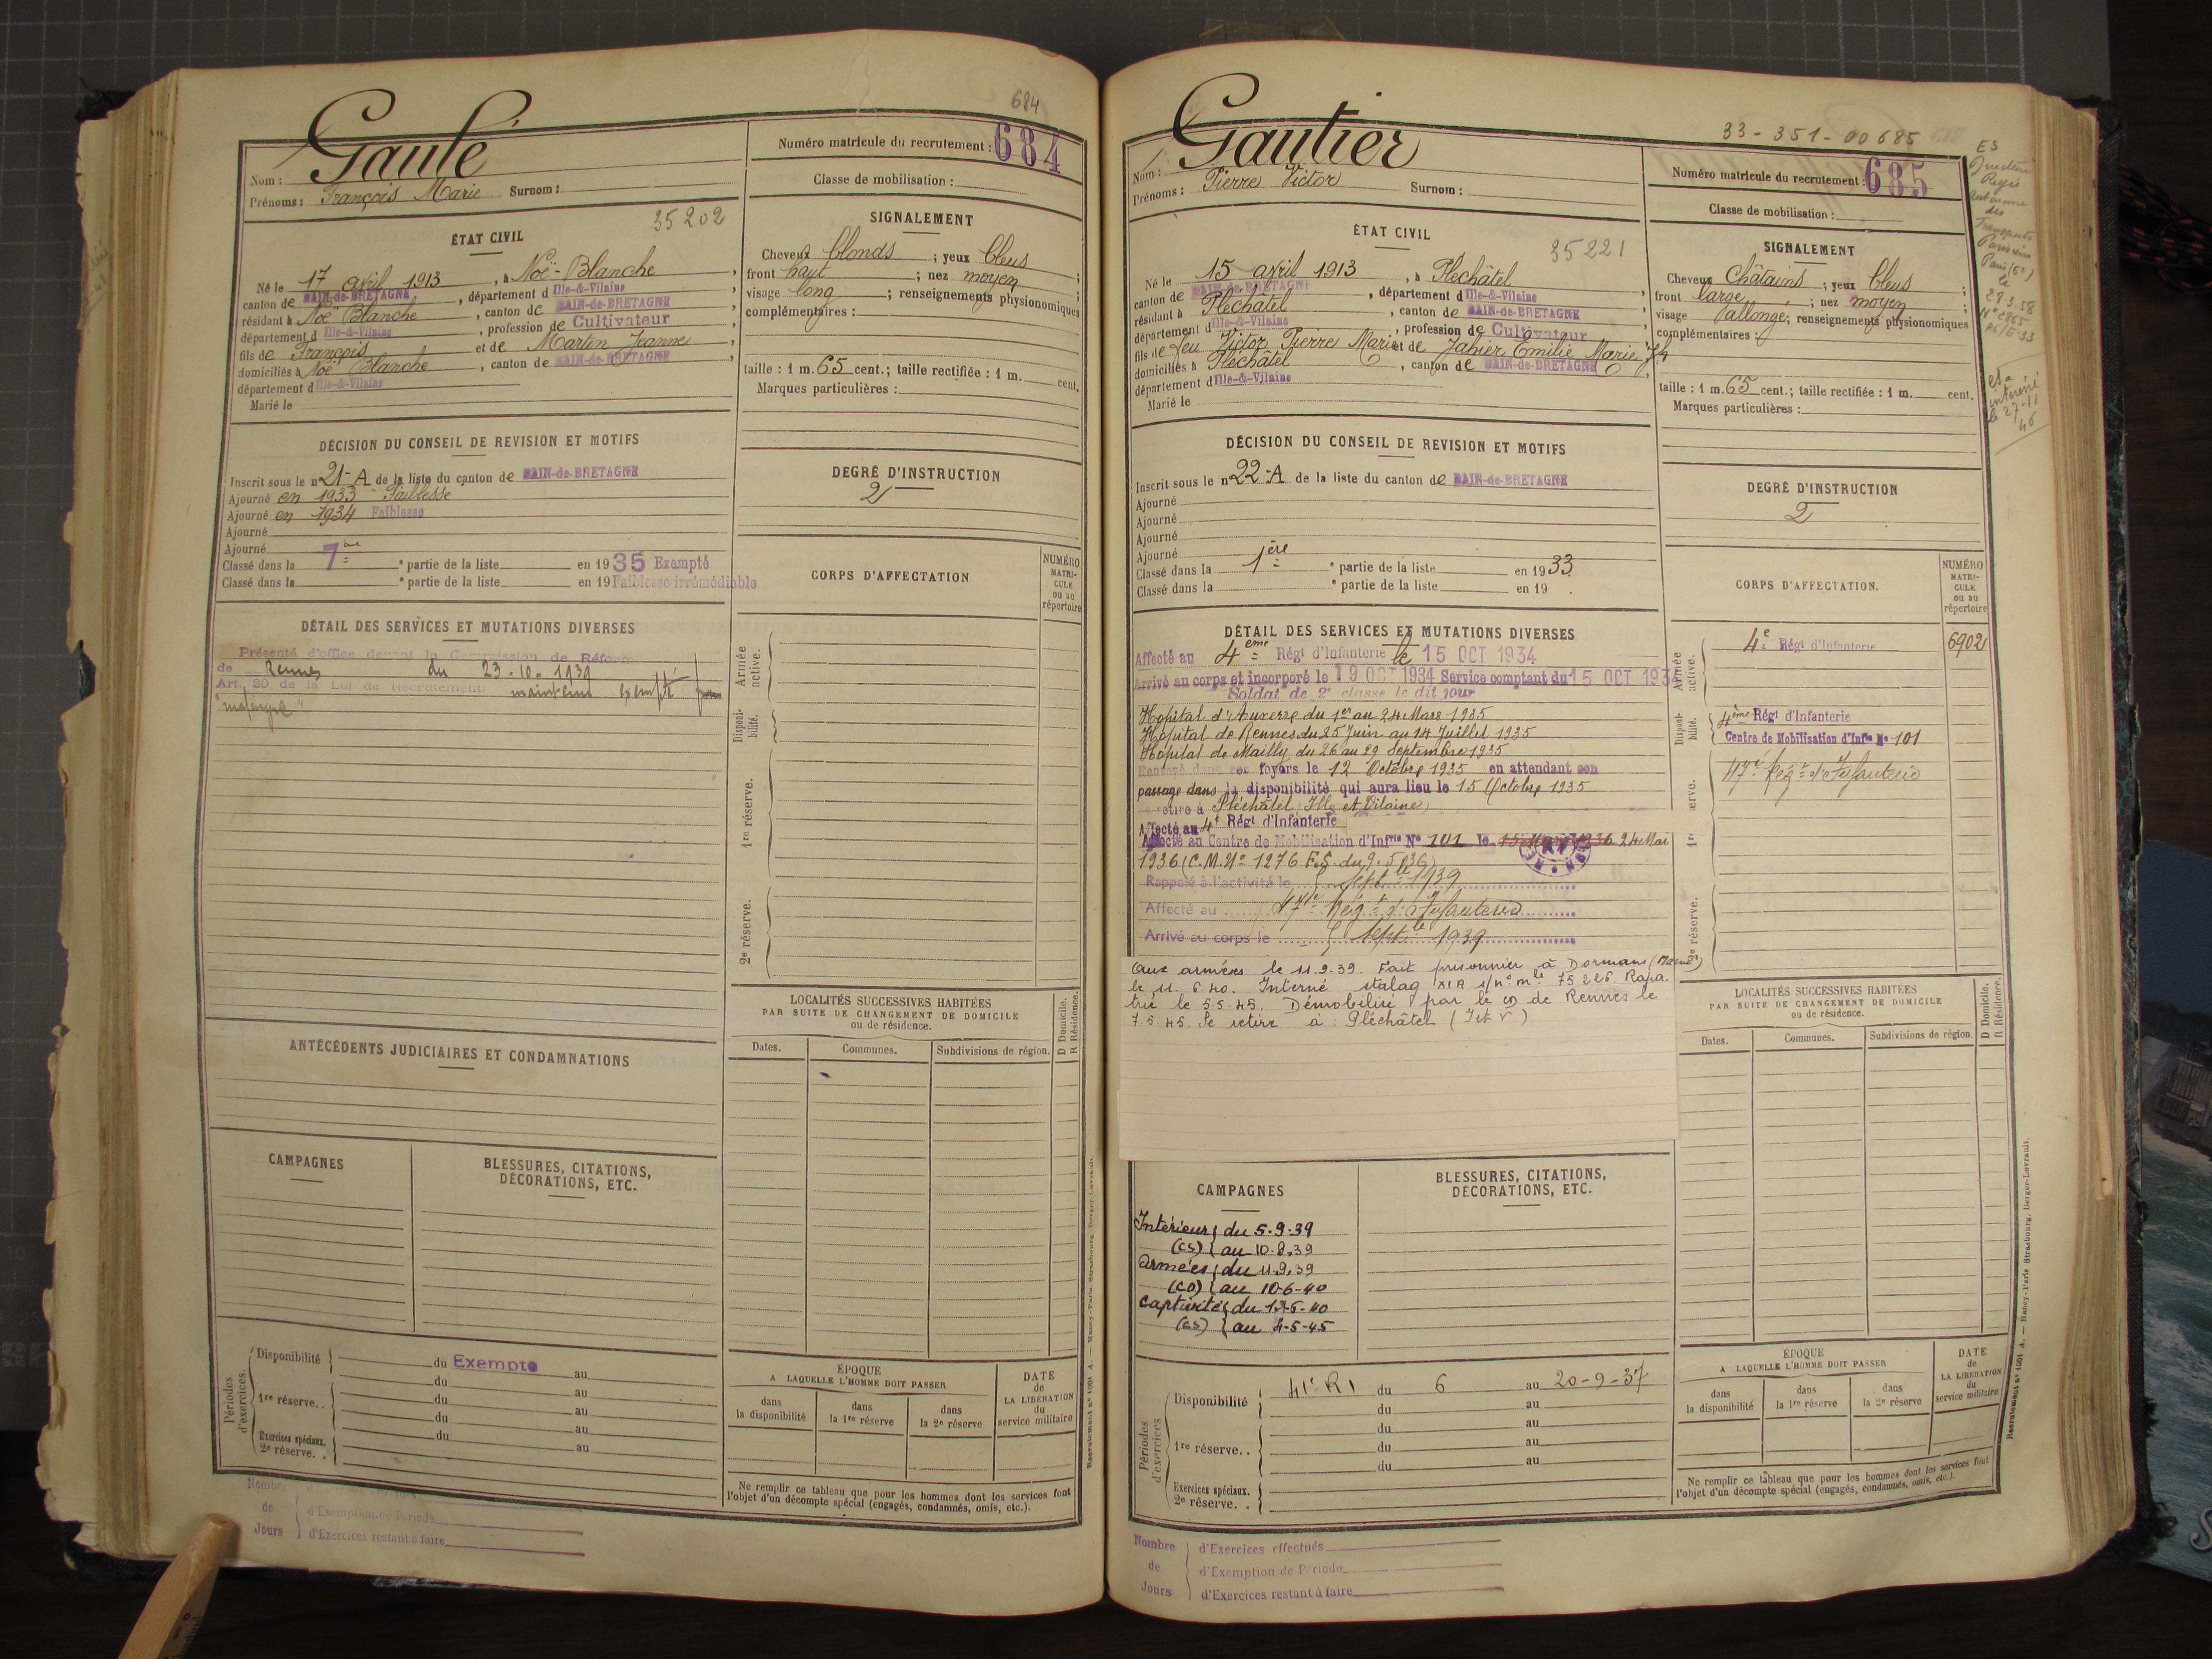 684
Gaulé
Nom :
Prénoms : François Marie Surnom :
Numéro matricule du recrutement : 684
Classe de mobilisation :
35202
ÉTAT CIVIL
Né le 17 avril 1913, à Noë-Blanche,
canton de BAIN-de-BRETAGNE, département d Ille-&-Vilaine
résidant à Noë Blanche, canton de BAIN-de-BRETAGNE
département d Ille-&-Vilaine, profession de Cultivateur
fils de François et de Martin Jeanne
domiciliés à Noë Blanche, canton de BAIN-de-BRETAGNE,
département d Ille-&-Vilaine
Marié le
SIGNALEMENT
Cheveux blonds ; yeux bleus ;
front haut ; nez moyen ;
visage long ; renseignements physionomiques
complémentaires :
taille : 1 m. 65 cent.; taille rectifiée : 1 m. cent.
Marques particulières :
DÉCISION DU CONSEIL DE REVISION ET MOTIFS
Inscrit sous le n° 21-A de la liste du canton de BAIN-de-BRETAGNE
Ajourné en 1933 - Faiblesse
Ajourné en 1934 Faiblesse
Ajourné
Ajourné
Classé dans la 7ème partie de la liste en 1935 Exempté
Classé dans la e partie de la liste en 19 Faiblesse irrémédiable
DEGRÉ D'INSTRUCTION
2
CORPS D'AFFECTATION
NUMÉRO MATRICULE ou au répertoire
DÉTAIL DES SERVICES ET MUTATIONS DIVERSES
Présenté d'office devant la Commission de Réforme
de Rennes du 23.10.1939
Art. 20 de la Loi de Recrutement. maintenu exempté pour
Armée active.
Disponibilité.
1re réserve.
2e réserve.
LOCALITÉS SUCCESSIVES HABITÉES
PAR SUITE DE CHANGEMENT DE DOMICILE
ou de résidence.
Dates. Communes. Subdivisions de région. D Domicile. R Résidence.
ANTÉCÉDENTS JUDICIAIRES ET CONDAMNATIONS
CAMPAGNES
BLESSURES, CITATIONS,
DÉCORATIONS, ETC.
Périodes d'exercices.
Disponibilité du Exempté au
du au
1re réserve. . du au
du au
Exercices spéciaux. du au
2e réserve. . au
ÉPOQUE
A LAQUELLE L'HOMME DOIT PASSER
dans la disponibilité dans la 1re réserve dans la 2e réserve
DATE de LA LIBÉRATION du service militaire
Ne remplir ce tableau que pour les hommes dont les services font
l'objet d'un décompte spécial (engagés, condamnés, omis, etc.).
Nombre de Jours
d'Exemption de Période
d'Exercices restant à faire
Recrutement n° 1091 A. — Nancy-Paris-Strasbourg, Berger-Levrault.
33-351-00685
Gautier
Nom :
Prénoms : Pierre Victor Surnom :
Numéro matricule du recrutement : 685
Classe de mobilisation :
35221
ÉTAT CIVIL
Né le 15 avril 1913, à Pléchâtel,
canton de BAIN-de-BRETAGNE, département d Ille-&-Vilaine
résidant à Pléchâtel, canton de BAIN-de-BRETAGNE
département d Ille-&-Vilaine, profession de Cultivateur
fils de feu Victor Pierre Marie et de Jahier Emilie Marie
domiciliés à Pléchâtel, canton de BAIN-de-BRETAGNE,
département d Ille-&-Vilaine
Marié le
SIGNALEMENT
Cheveux Châtains ; yeux bleus ;
front large ; nez moyen ;
visage allongé ; renseignements physionomiques
complémentaires :
taille : 1 m. 65 cent.; taille rectifiée : 1 m. cent.
Marques particulières :
ES
Directeur
Régie
Autonome
des
Transports
Parisiens
Paris
le
28.3.58
interné
le 27-11
46
DÉCISION DU CONSEIL DE REVISION ET MOTIFS
Inscrit sous le n° 22-A de la liste du canton de BAIN-de-BRETAGNE
Ajourné
Ajourné
Ajourné
Ajourné
Classé dans la 1ère partie de la liste en 1933.
Classé dans la e partie de la liste en 19 .
DEGRÉ D'INSTRUCTION
2
CORPS D'AFFECTATION.
NUMÉRO MATRICULE ou au répertoire
DÉTAIL DES SERVICES ET MUTATIONS DIVERSES
Affecté au 4ème Régt d'Infanterie le 15 OCT 1934
Arrivé au corps et incorporé le 19 OCT 1934 Service comptant du 15 OCT 1934
Soldat de 2e classe le dit jour
Hôpital d'Auxerre du 1er au 24 Mars 1935
Hôpital de Rennes du 25 Juin au 14 Juillet 1935
Hôpital de Mailly du 26 au 29 Septembre 1935
Renvoyé dans ses foyers le 12 Octobre 1935 en attendant son
passage dans la disponibilité qui aura lieu le 15 Octobre 1935
retire à Pléchâtel (Ille et Vilaine)
Affecté au 4e Régt d'Infanterie
Affecté au Centre de Mobilisation d'Infrie N° 101 le 15 Mars 1936 24 Mai
1936 (C.M. N° 1276 E.S. du 9.5.36)
Rappelé à l'activité le 5 septbre 1939
Affecté au 47e Régt d'Infanterie
Arrivé au corps le 5 septbre 1939
Aux armées le 11.9.39. Fait prisonnier à Dormans (Marne)
le 11.6.40. Interné stalag XI A s/n° mle 75226 Rapa-
trié le 5.5.45. Démobilisé par le CD de Rennes le
7.5.45. Se retire à : Pléchâtel (I et V)
Armée active. 4e Régt d'Infanterie 6902
Disponibilité. 4ème Régt d'Infanterie
Centre de Mobilisation d'Infie N° 101
47e Régt d'Infanterie
2e réserve.
LOCALITÉS SUCCESSIVES HABITÉES
PAR SUITE DE CHANGEMENT DE DOMICILE
ou de résidence.
Dates. Communes. Subdivisions de région. D Domicile. R Résidence.
CAMPAGNES
Intérieur du 5-9-39
(CS) au 10.9.39
Armées du 11.9.39
(CD) au 10-6-40
Captivité du 11-6-40
(CS) au 4-5-45
BLESSURES, CITATIONS,
DÉCORATIONS, ETC.
Périodes d'exercices
Disponibilité 41e RI du 6 au 20-9-37
du au
du au
1re réserve. . du au
du au
Exercices spéciaux.
2e réserve. .
ÉPOQUE
A LAQUELLE L'HOMME DOIT PASSER
dans la disponibilité dans la 1re réserve dans la 2e réserve
DATE de LA LIBÉRATION du service militaire
Ne remplir ce tableau que pour les hommes dont les services font
l'objet d'un décompte spécial (engagés, condamnés, omis, etc.).
Nombre de Jours
d'Exercices effectués
d'Exemption de Période
d'Exercices restant à faire
Recrutement n° 1091 A. — Nancy-Paris-Strasbourg, Berger-Levrault.